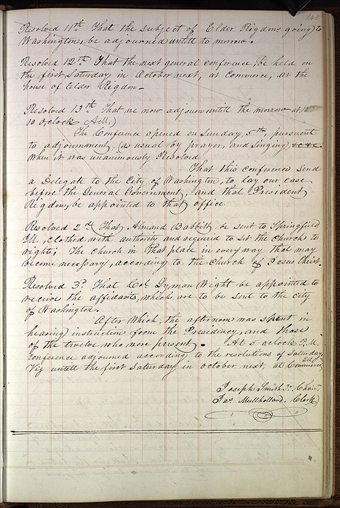 Resolved 11th That the subject of Elder Rigdons going to
Washington, be adjourned untill to morrow.
Resolved 12th That the next general conference, be held on
the first Saturday in October next, at Commerce, at the
house of Elder Rigdon.
Resolved 13th That we now adjourn untill the morrow at
10 O,clock A.M.
The Conference opened on Sunday 5th, pursuant
to adjournment, (as usual by prayer, and singing)
When it was unanimously Resolved
That this conference send
a Delegate to the City of Washington, to lay our case
before the General Government, and that President
Rigdon, be appointed to that office
Resolved 2nd That, Almond Babbitt, be sent to Springfield
Ill, clothed with authority and required to set the Church to
rights, The church in that place in every way that may
become necessary, according to the Church of Jesus Christ.
Resolved 3d That Col Lyman Wight be appointed to
receive the affidavits, which are to be sent to the City
of Washington.
After Which, the afternoon was spent in
hearing instruction from the Presidency, and those
of the twelve who were present. At 5 o,clock P.M.
Conference adjourned according to the resolutions of Saturday
Viz untill the first Saturday in october next, at Commerce
Joseph Smith Jr. Chair
Jas Mullholland, Clerk